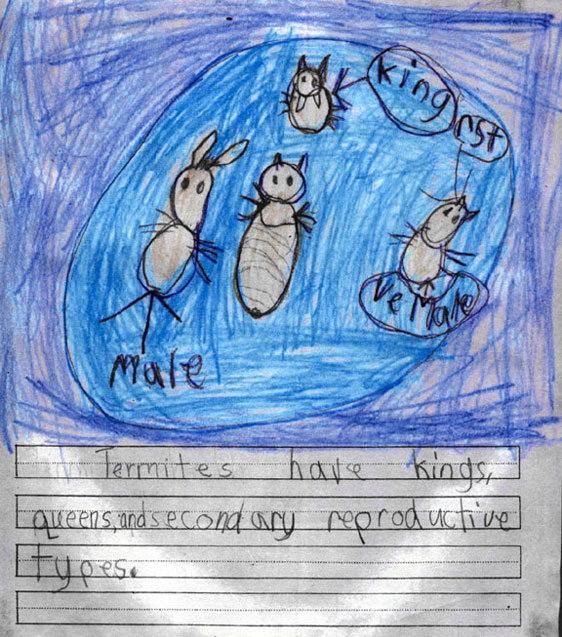 king
rst
Vemale
male
Termites have kings,
queens, and secondary reproductive
types.